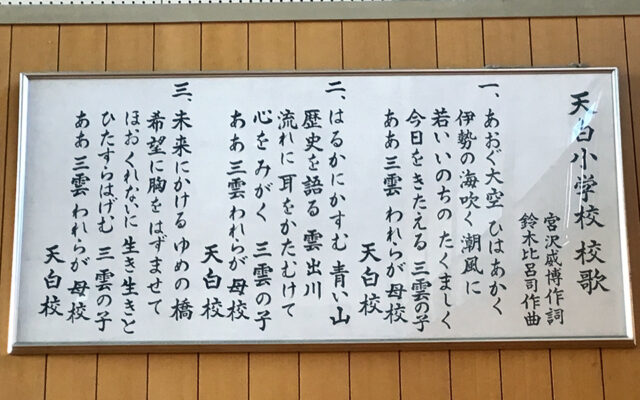 天白小学校校歌
宮沢威博作詞
鈴木比呂司作曲
一、あおぐ大空 ひはあかく
伊勢の海吹く潮風に
若いいのちの たくましく
今日をきたえる 三雲の子
ああ三雲 われらが母校
天白校
二、はるかにかすむ 青い山
歴史を語る 雲出川
流れに耳をかたむけて
心をみがく 三雲の子
ああ三雲 われらが母校
天白校
三、未来にかける ゆめの橋
希望に胸をはずませて
ほおくれないに生き生きと
ひたすらはげむ 三雲の子
ああ三雲 われらが母校
天白校